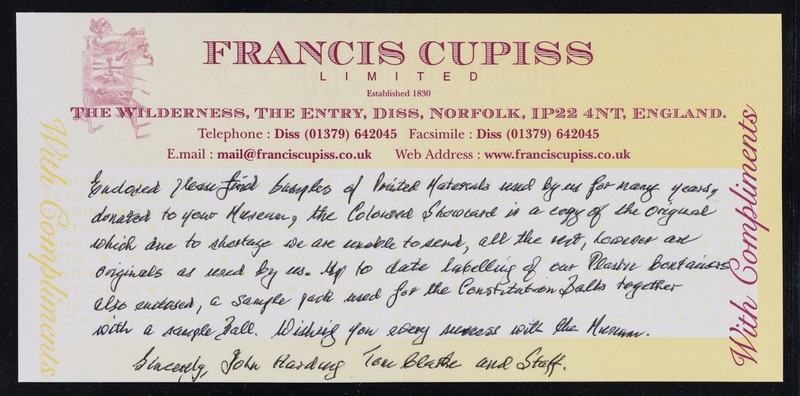 FRANCIS CUPISS
LIMITED
Established 1830
THE WILDERNESS, THE ENTRY, DISS, NORFOLK, IP22 4NT, ENGLAND.
Telephone : Diss (01379) 642045 Facsimile : Diss (01379) 642045
E.mail : mail@franciscupiss.co.uk Web Address : www.franciscupiss.co.uk
With Compliments
With Compliments
Enclosed please find Samples of Printed Materials used by us for many years,
donated to your Museum, the Coloured Showcard is a copy of the original
which due to shortage we are unable to send, all the rest, however are
originals as used by us. Up to date labelling of our Plastic Containers
also enclosed, a sample pack used for the Constitution Balls together
with a sample Ball. Wishing you every success with the Museum.
Sincerely, John Harding Tom and Staff.